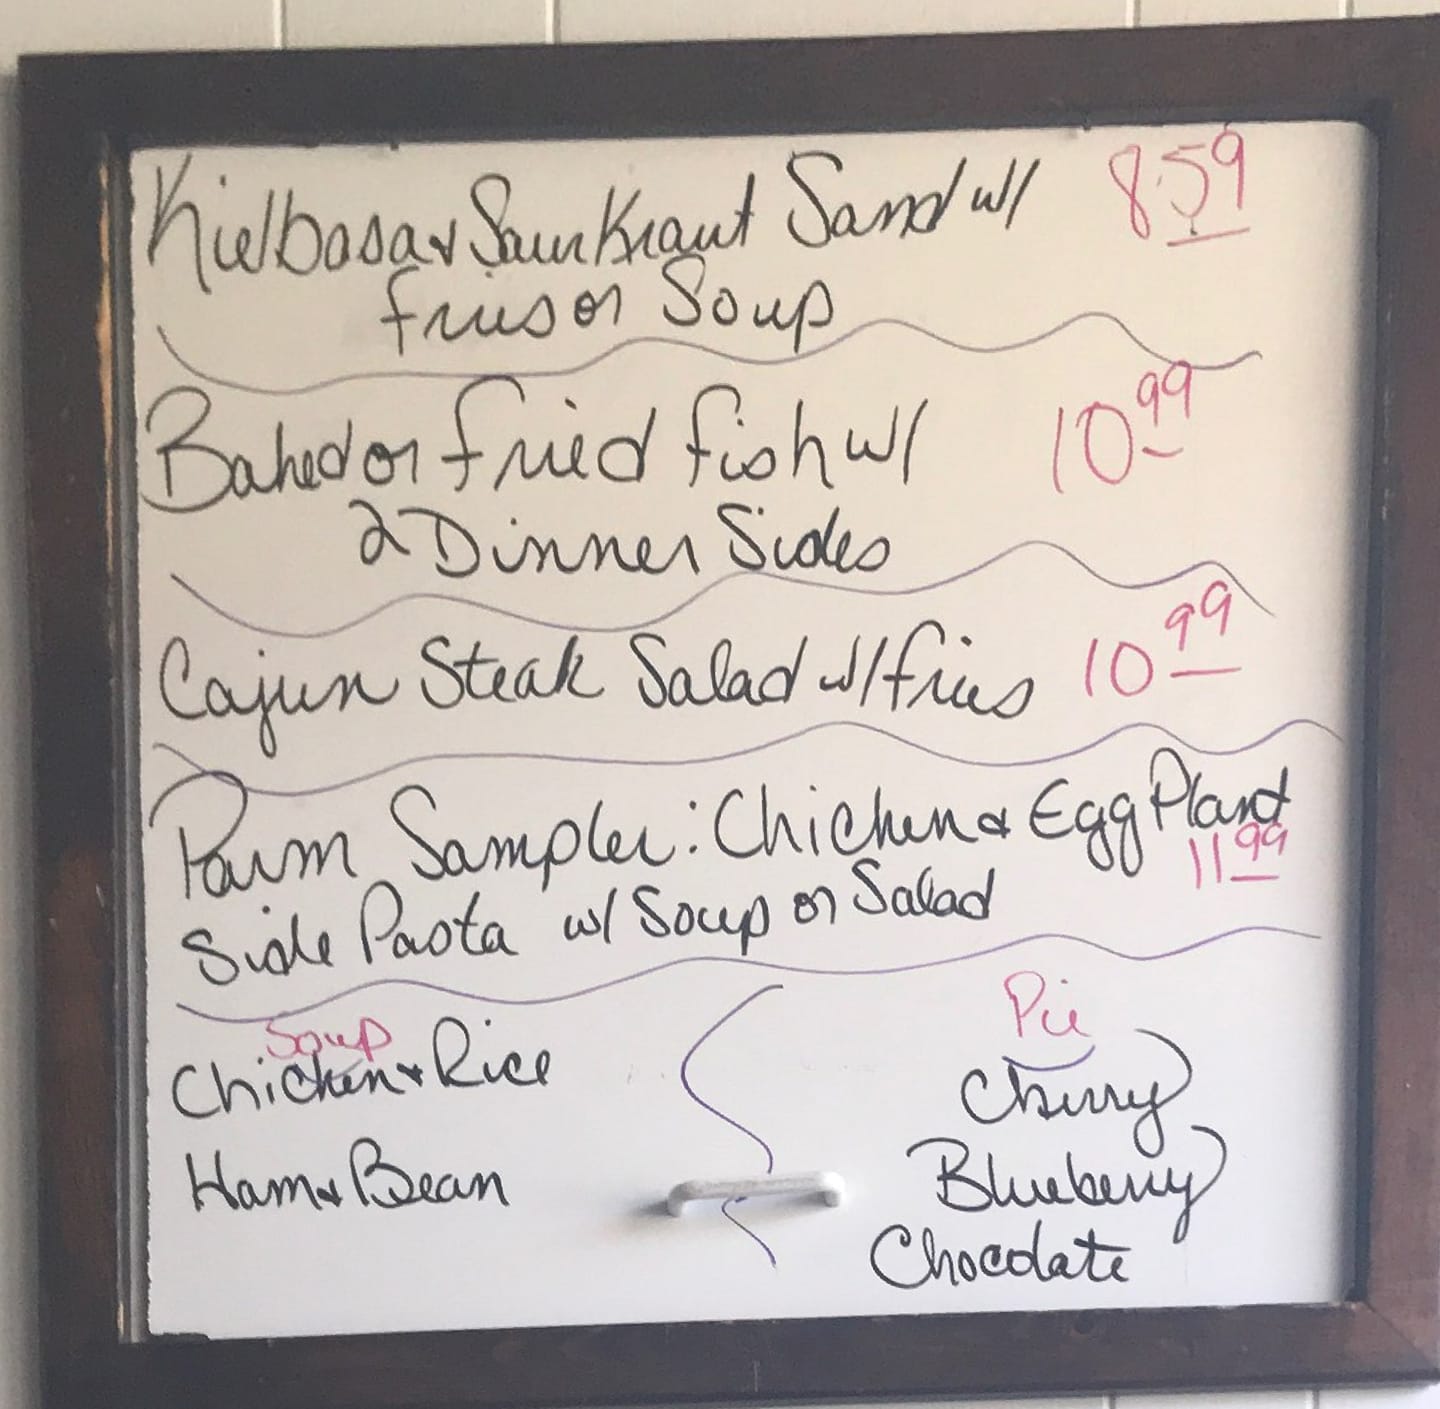 Kielbasa & SaurKraut Sand w/ 8.59
fries or Soup
Baked or fried fish w/ 10 99
2 Dinner Sides
Cajun Steak Salad w/ fries 10 99
Parm Sampler: Chicken & Egg Plant
11 99
Side Pasta w/ Soup or Salad
Soup
Chicken & Rice
Ham & Bean
Pie
Cherry
Blueberry
Chocolate